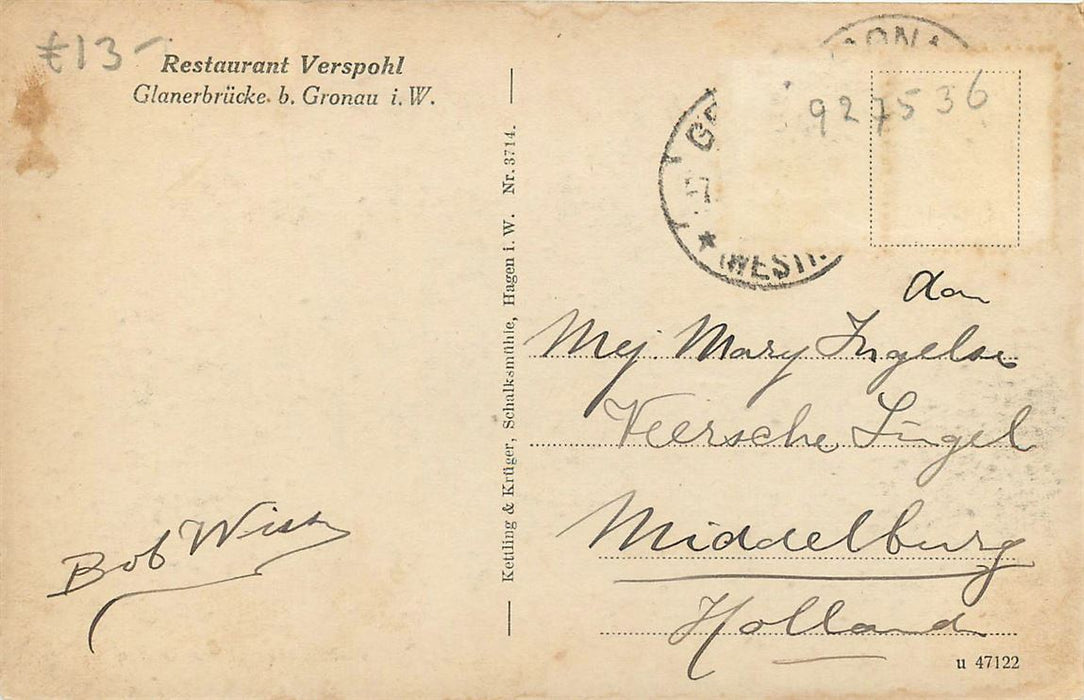 €13-
Restaurant Verspohl
Glanerbrücke b. Gronau i. W.
Kettling & Krüger, Schalksmühle, Hagen i. W. Nr. 3714.
927536
Aan
Mej. Mary Ingelse
Veersche Singel
Middelburg
Holland
Bob
u 47122